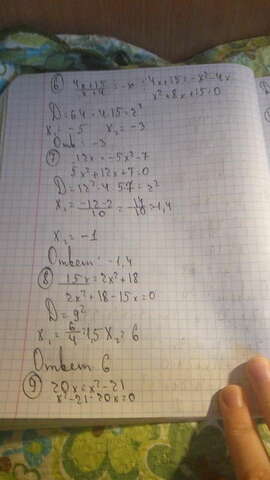 ⑥ (4x+15)/(x+4) = -x = 4x+15=-x²-4x
x²+8x+15=0
D=64-4·15=2²
x₁=-5 x₂=-3
Отв: -3
⑦ 12x=-5x²-7
5x²+12x+7=0
D=12²-4·5·7=2²
x₁=(-12-2)/10=-14/10=-1,4
x₂=-1
Ответ: -1,4
⑧ 15x=2x²+18
2x²+18-15x=0
D=9²
x₁=6/4=1,5 x₂=6
Ответ: 6
⑨ 20x=x²-21
x²-21-20x=0